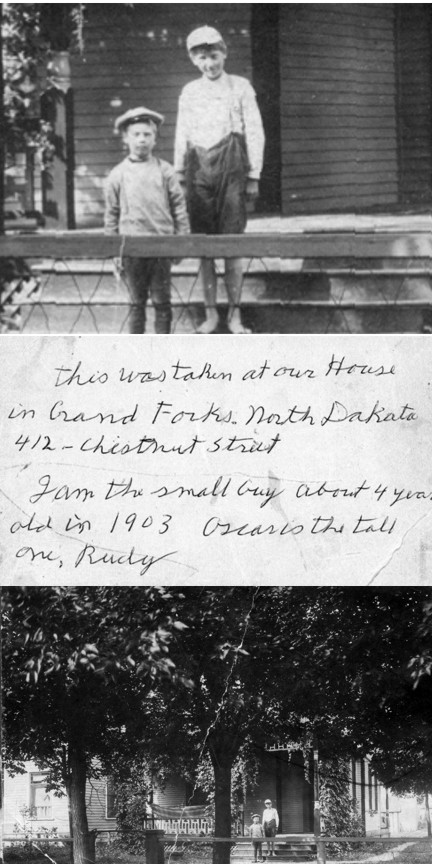 this was taken at our House
in Grand Forks. North Dakata
412 - Chestnut Street
I am the small buy about 4 year
old in 1903 Oscar is the tall
one, Rudy